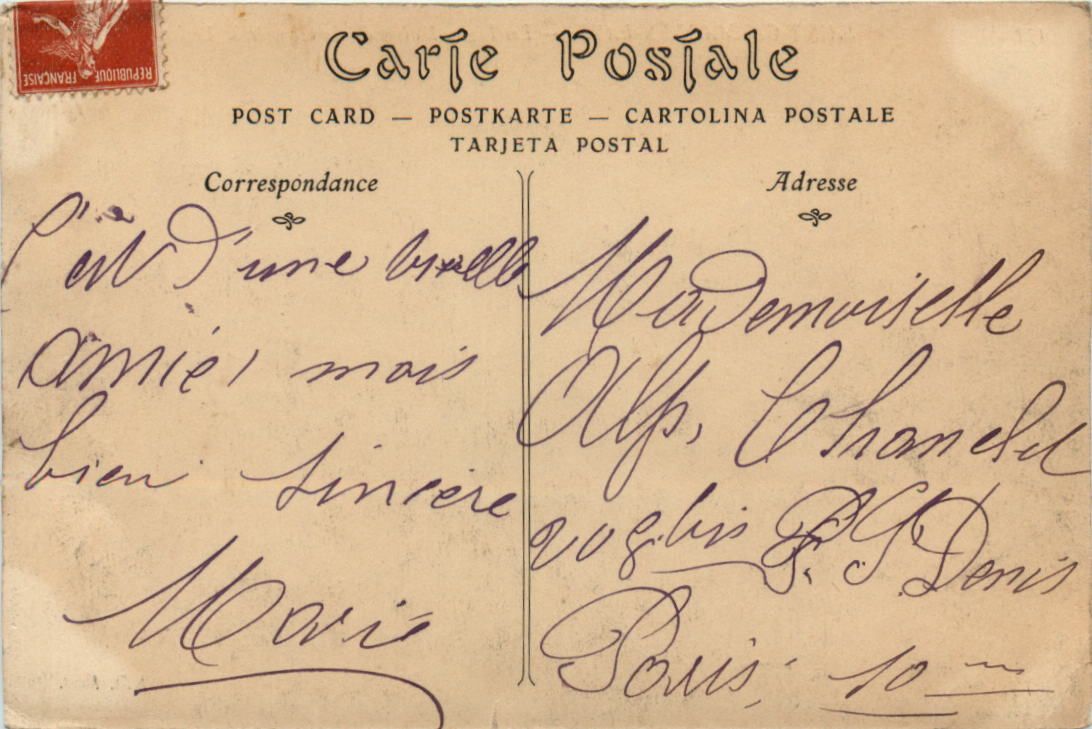 REPUBLIQUE FRANÇAISE
Carte Postale
POST CARD — POSTKARTE — CARTOLINA POSTALE
TARJETA POSTAL
Correspondance
C'est d'une
amie, mais
bien sincère
Marie
Adresse
Mademoiselle
Alp.
208 bis F. S Denis
Paris, 10